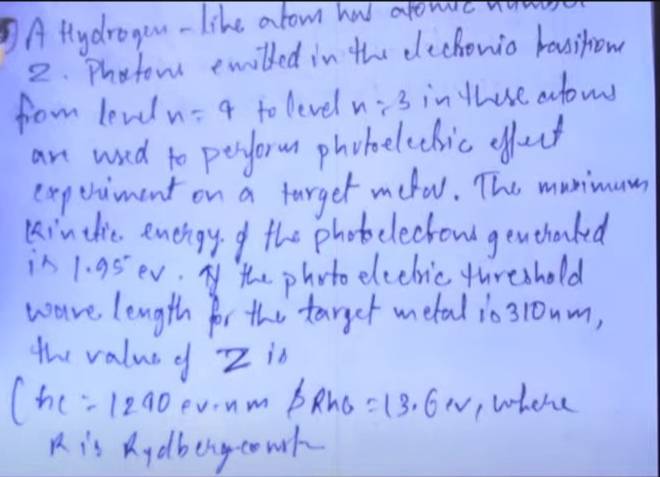 A Hydrogen-like atom has atomic number
Z. Photons emitted in the elechonic trasitions
from level n=4 to level n=3 in these atoms
are used to perform photoelectric effect
experiment on a target metal. The maximum
Kinetic energy of the photoelectrons generated
is 1.95 ev. If the photo electric threshold
wave length for the target metal is 310nm,
the value of Z is
(hc = 1240 ev.nm & Rhc = 13.6 ev, where
R is Rydberg const